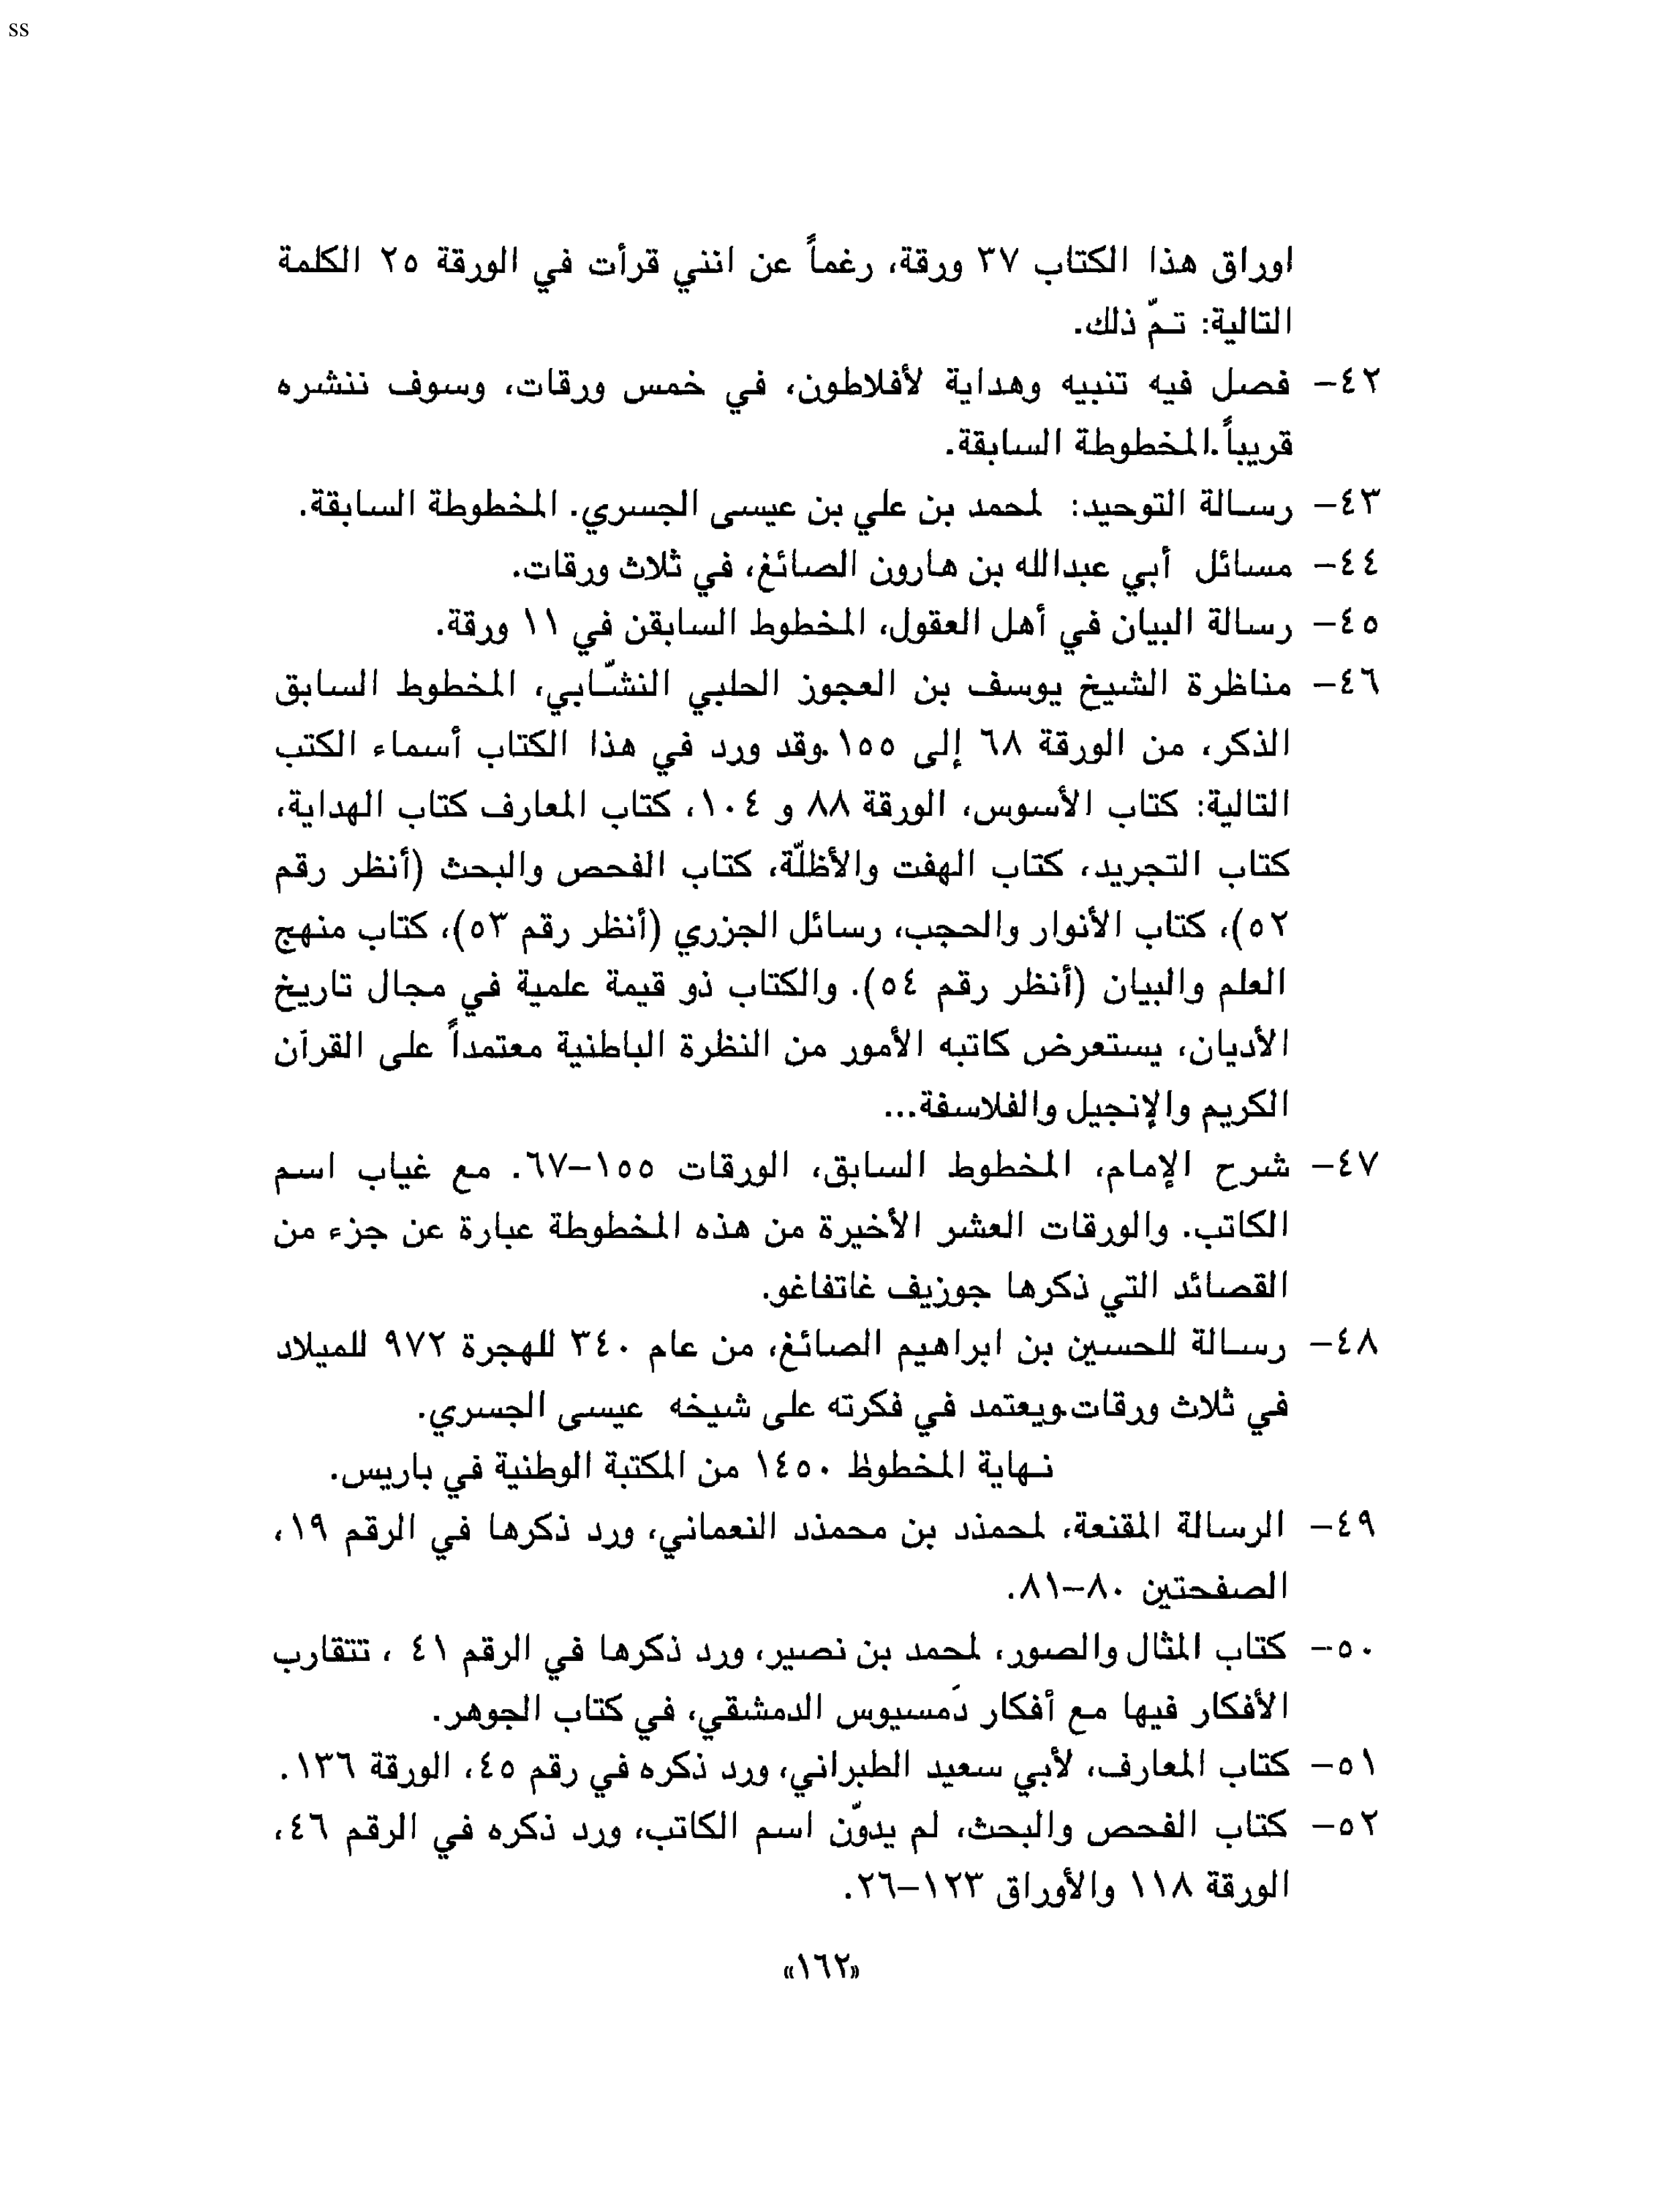 ss
اوراق هذا الكتاب ٣٧ ورقة، رغماً عن انني قرأت في الورقة ٢٥ الكلمة
التالية: تمّ ذلك.
٤٢- فصل فيه تنبيه وهداية لأفلاطون، في خمس ورقات، وسوف ننشره
قريباً.المخطوطة السابقة.
٤٣- رسالة التوحيد: لمحمد بن علي بن عيسى الجسري. المخطوطة السابقة.
٤٤- مسائل أبي عبدالله بن هارون الصائغ، في ثلاث ورقات.
٤٥- رسالة البيان في أهل العقول، المخطوط السابقن في ١١ ورقة.
٤٦- مناظرة الشيخ يوسف بن العجوز الحلبي النشّابي، المخطوط السابق
الذكر، من الورقة ٦٨ إلى ١٥٥.وقد ورد في هذا الكتاب أسماء الكتب
التالية: كتاب الأسوس، الورقة ٨٨ و ١٠٤، كتاب المعارف كتاب الهداية،
كتاب التجريد، كتاب الهفت والأظلّة، كتاب الفحص والبحث (أنظر رقم
٥٢)، كتاب الأنوار والحجب، رسائل الجزري (أنظر رقم ٥٣)، كتاب منهج
العلم والبيان (أنظر رقم ٥٤). والكتاب ذو قيمة علمية في مجال تاريخ
الأديان، يستعرض كاتبه الأمور من النظرة الباطنية معتمداً على القرآن
الكريم والإنجيل والفلاسفة...
٤٧- شرح الإمام، المخطوط السابق، الورقات ١٥٥-٦٧. مع غياب اسم
الكاتب. والورقات العشر الأخيرة من هذه المخطوطة عبارة عن جزء من
القصائد التي ذكرها جوزيف غاتفاغو.
٤٨- رسالة للحسين بن ابراهيم الصائغ، من عام ٣٤٠ للهجرة ٩٧٢ للميلاد
في ثلاث ورقات.ويعتمد في فكرته على شيخه عيسى الجسري.
نهاية المخطوظ ١٤٥٠ من المكتبة الوطنية في باريس.
٤٩- الرسالة المقنعة، لمحمذد بن محمذد النعماني، ورد ذكرها في الرقم ١٩،
الصفحتين ٨٠-٨١.
٥٠- كتاب المثال والصور، لمحمد بن نصير، ورد ذكرها في الرقم ٤١ ، تتقارب
الأفكار فيها مع أفكار دَمسيوس الدمشقي، في كتاب الجوهر.
٥١- كتاب المعارف، لأبي سعيد الطبراني، ورد ذكره في رقم ٤٥، الورقة ١٣٦.
٥٢- كتاب الفحص والبحث، لم يدوّن اسم الكاتب، ورد ذكره في الرقم ٤٦،
الورقة ١١٨ والأوراق ١٢٣-٢٦.
«١٦٢»